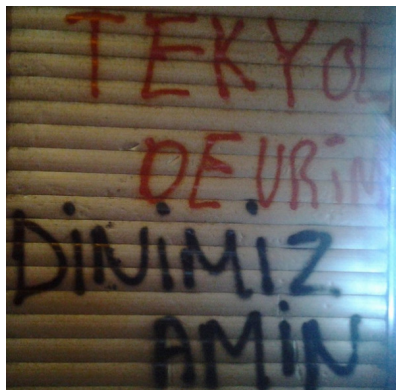 TEKYOL
DEVRİM
DİNİMİZ
AMİN